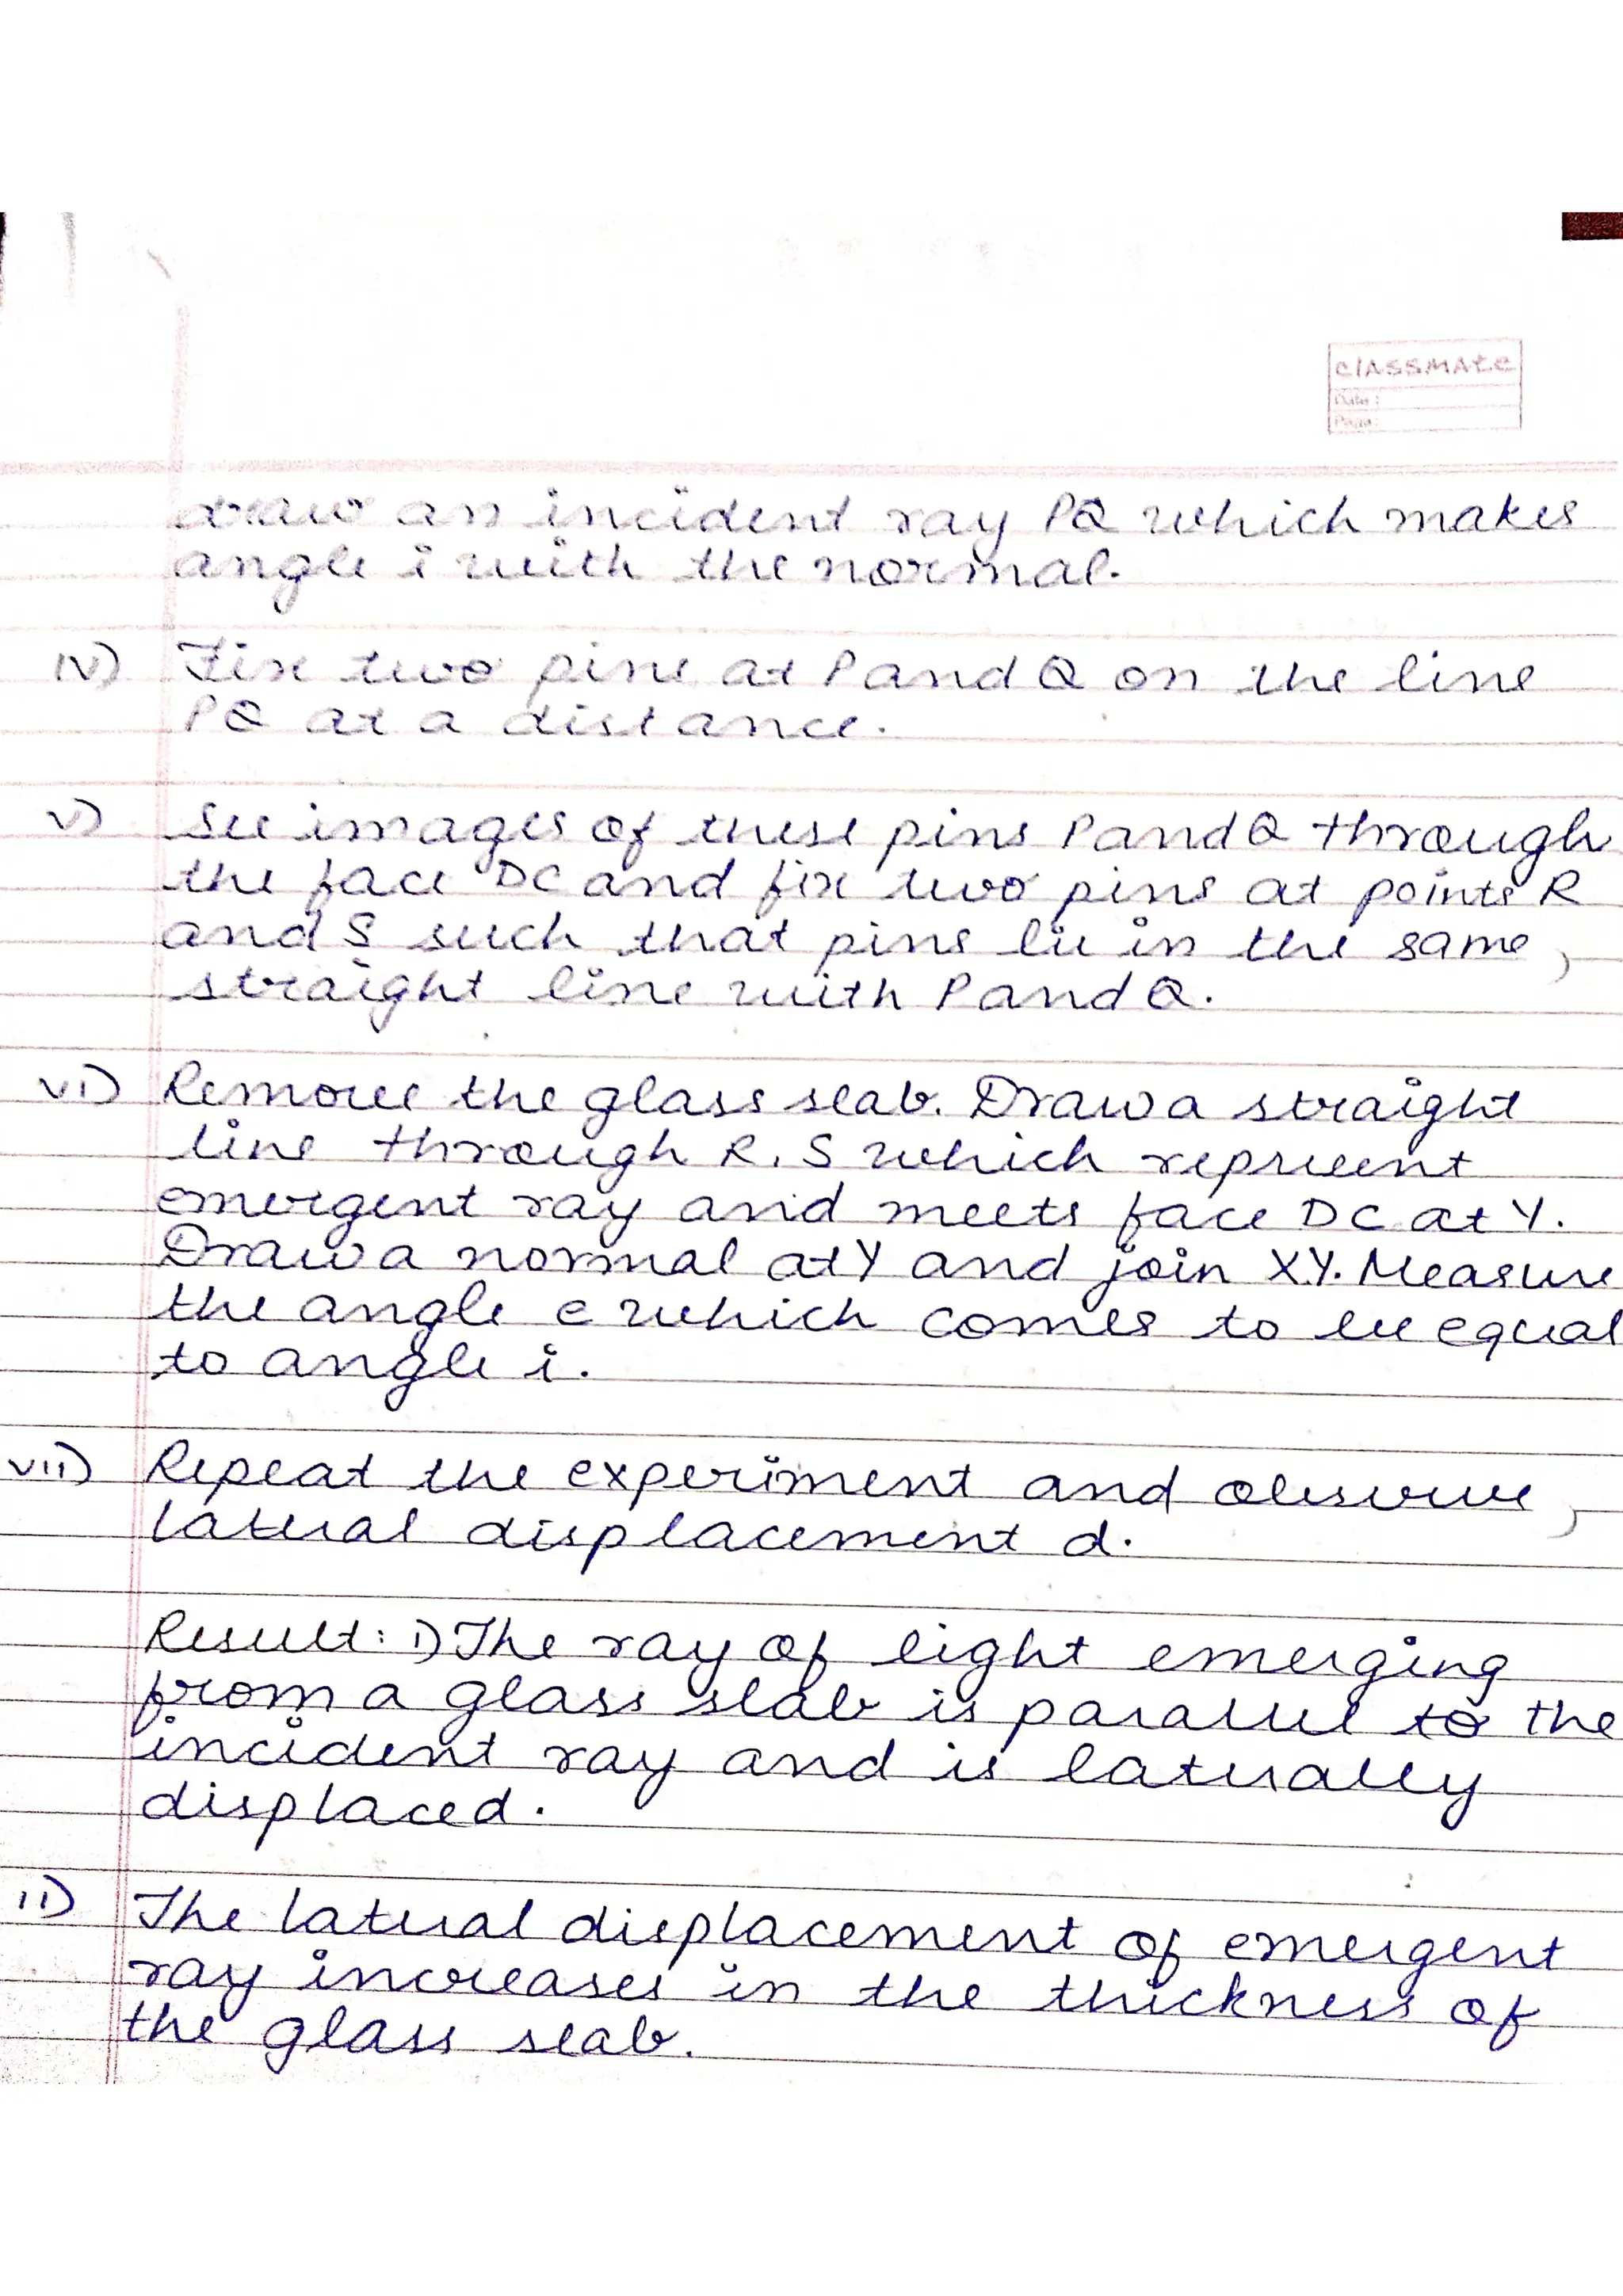 classmate
Date :
Page:
draw an incident ray PQ which makes
angle i with the normal.
iv) Fix two pins at P and Q on the line
PQ at a distance.
v) See images of these pins P and Q through
the face DC and fix two pins at points R
and S such that pins lie in the same,
straight line with P and Q.
vi) Remove the glass slab. Draw a straight
line through R, S which represent
emergent ray and meets face DC at Y.
Draw a normal at Y and join XY. Measure
the angle e which comes to be equal
to angle i.
vii) Repeat the experiment and observe,
lateral displacement d.
Result: i) The ray of light emerging
from a glass slab is parallel to the
incident ray and is laterally
displaced.
ii) The lateral displacement of emergent
ray increases in the thickness of
the glass slab.